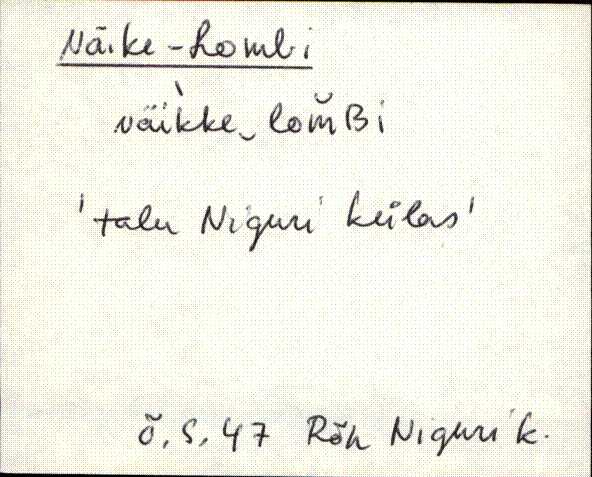 Näike-Lombi
näìkke‿lom̆Bi
'talu Niguri külas'
Õ. S. 47 Rõn Niguri k.